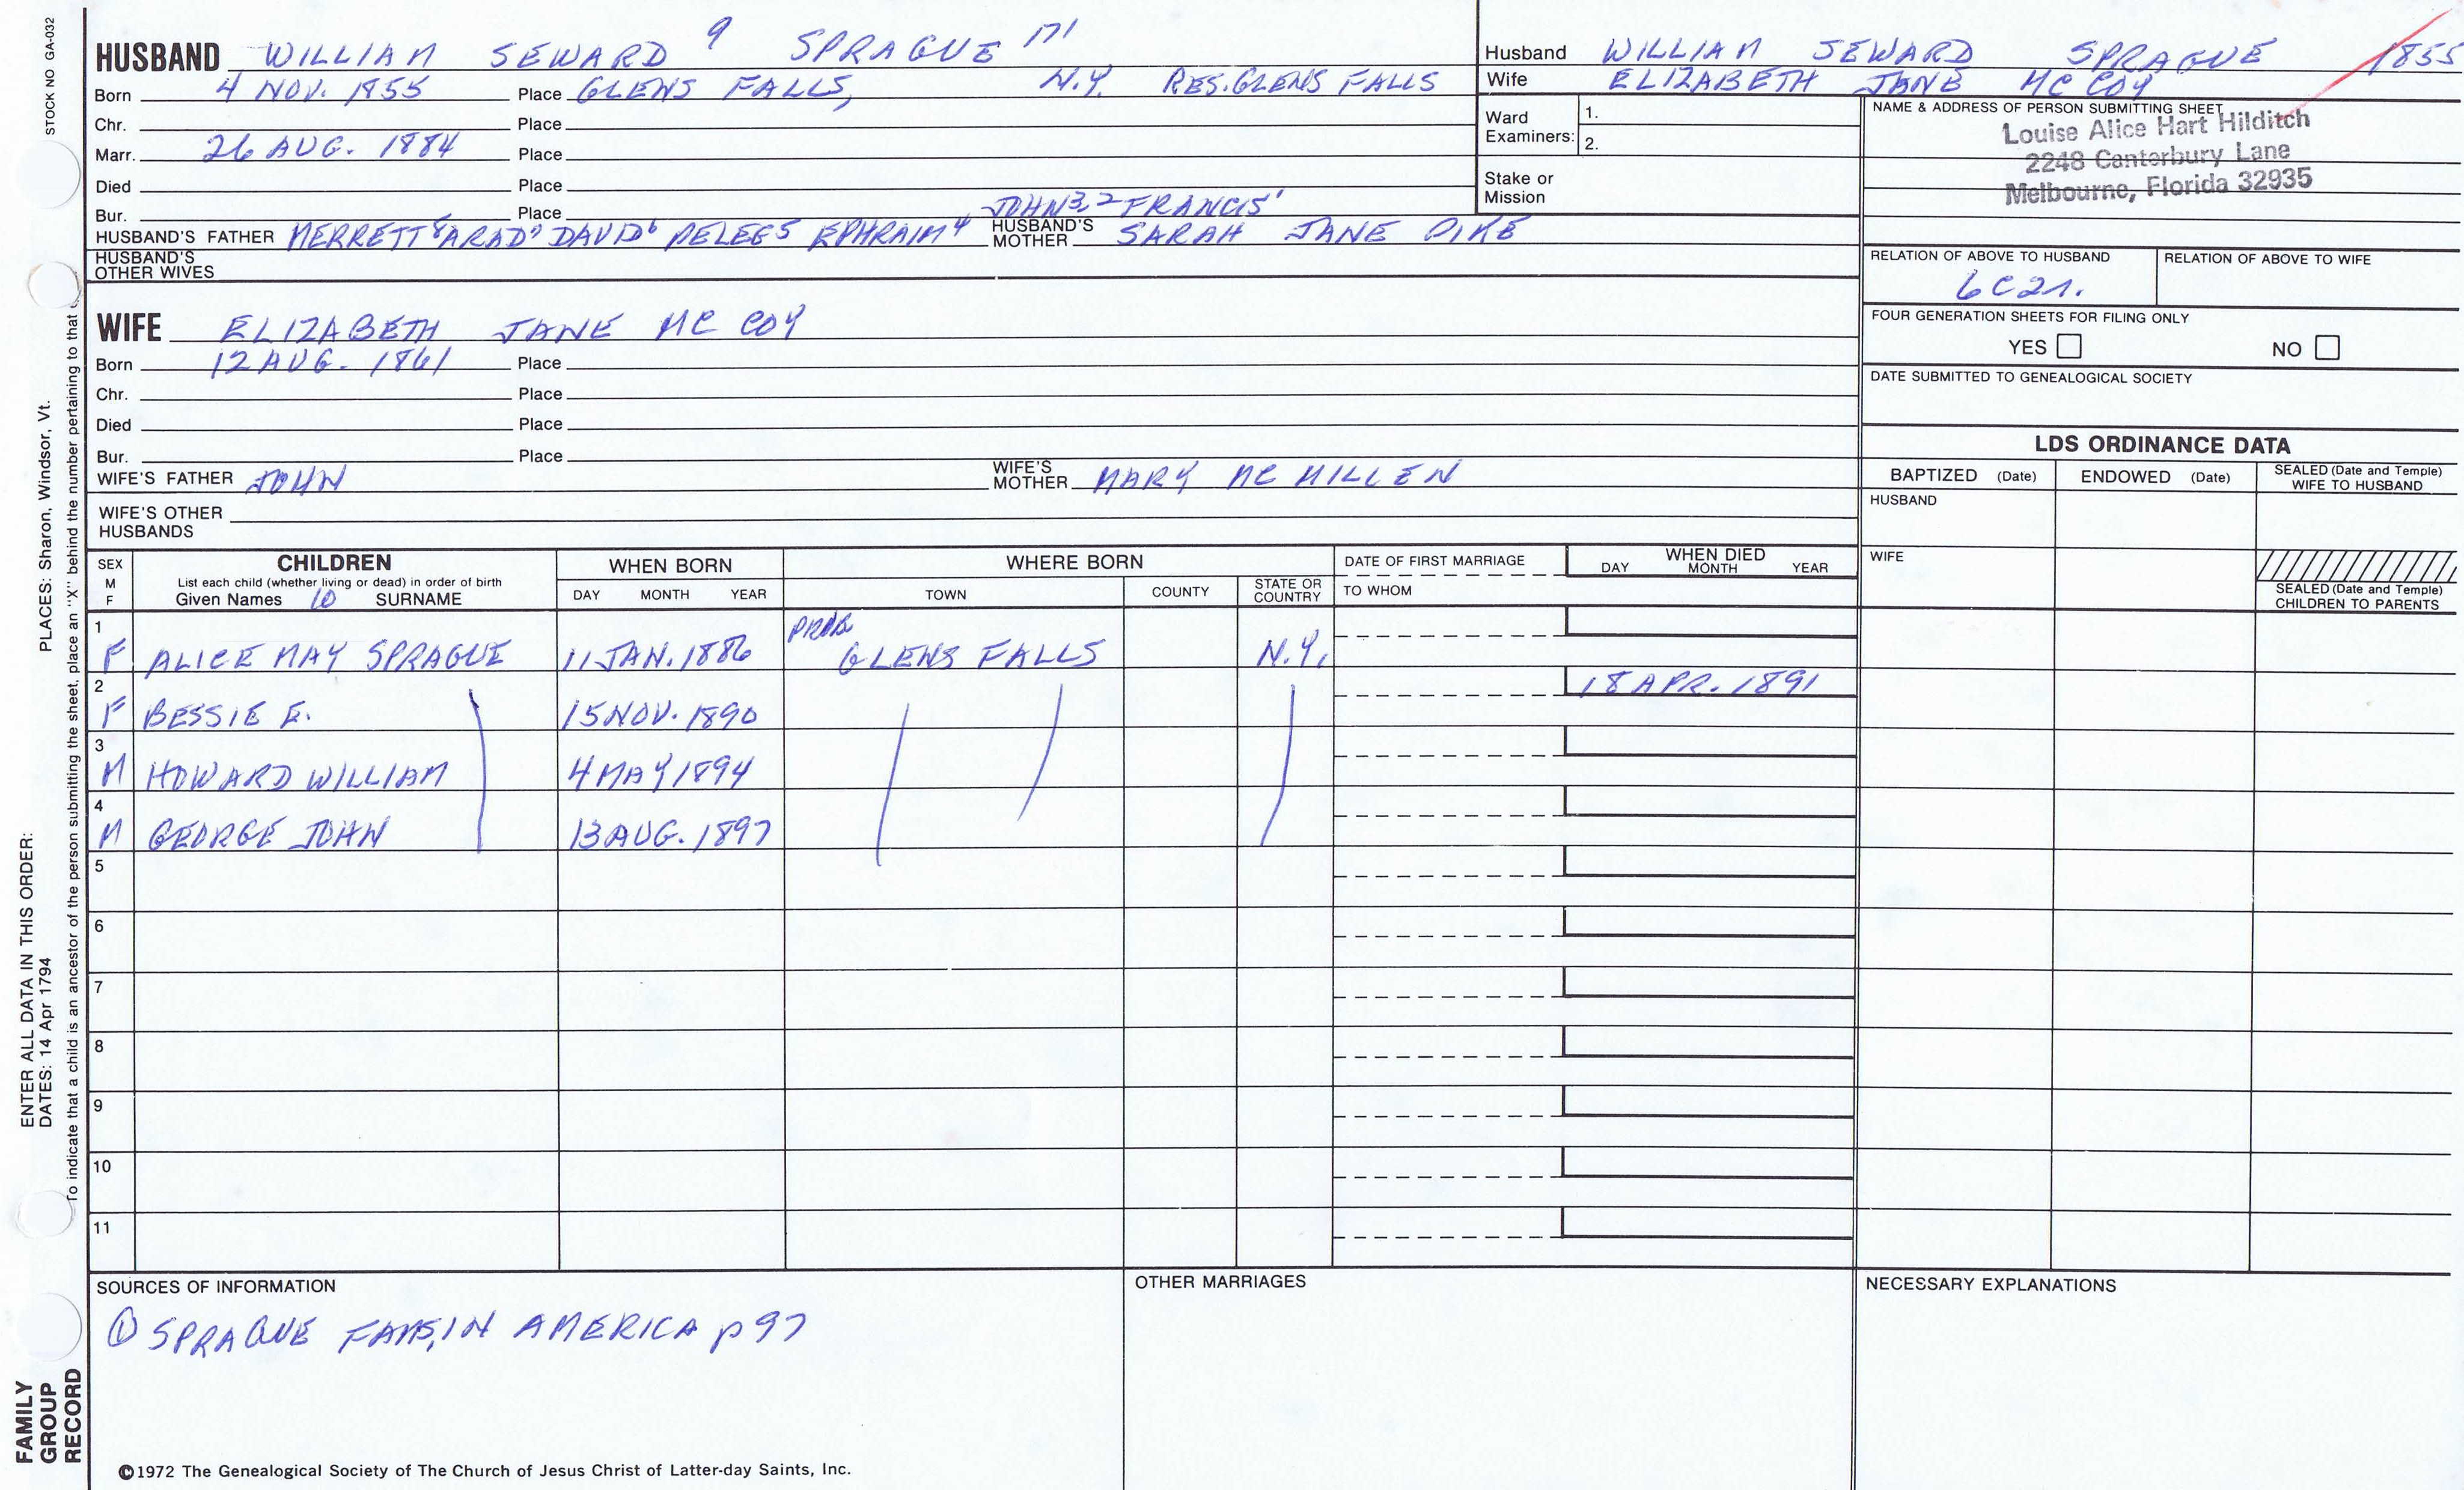 STOCK NO GA-032
HUSBAND WILLIAM SEWARD 9 SPRAGUE 171
Born 4 NOV. 1855 Place GLENS FALLS, N.Y. RES. GLENS FALLS
Chr. Place
Marr. 26 AUG. 1884 Place
Died Place
Bur. Place
JOHN3,2 FRANCIS1
HUSBAND'S FATHER MERRETT8 ARAD7 DAVID6 PELEG5 EPHRAIM4 HUSBAND'S MOTHER SARAH JANE PIKE
HUSBAND'S OTHER WIVES
Husband WILLIAM SEWARD SPRAGUE 1855
Wife ELIZABETH JANE MC COY
Ward Examiners: 1.
2.
Stake or Mission
NAME & ADDRESS OF PERSON SUBMITTING SHEET
Louise Alice Hart Hilditch
2248 Canterbury Lane
Melbourne, Florida 32935
RELATION OF ABOVE TO HUSBAND RELATION OF ABOVE TO WIFE
6C2r.
FOUR GENERATION SHEETS FOR FILING ONLY
YES NO
DATE SUBMITTED TO GENEALOGICAL SOCIETY
WIFE ELIZABETH JANE MC COY
Born 12 AUG. 1861 Place
Chr. Place
Died Place
Bur. Place
WIFE'S FATHER JOHN WIFE'S MOTHER MARY MC MILLEN
WIFE'S OTHER HUSBANDS
LDS ORDINANCE DATA
BAPTIZED (Date) ENDOWED (Date) SEALED (Date and Temple) WIFE TO HUSBAND
HUSBAND
WIFE
SEALED (Date and Temple) CHILDREN TO PARENTS
SEX M F CHILDREN WHEN BORN WHERE BORN DATE OF FIRST MARRIAGE WHEN DIED
List each child (whether living or dead) in order of birth
Given Names 10 SURNAME DAY MONTH YEAR TOWN COUNTY STATE OR COUNTRY TO WHOM DAY MONTH YEAR
1 PROB
F ALICE MAY SPRAGUE 11 JAN. 1886 GLENS FALLS N.Y.
2 18 APR. 1891
F BESSIE E. 15 NOV. 1890
3
M HOWARD WILLIAM 4 MAY 1894
4
M GEORGE JOHN 13 AUG. 1897
5
6
7
8
9
10
11
SOURCES OF INFORMATION OTHER MARRIAGES NECESSARY EXPLANATIONS
① SPRAGUE FAMS, IN AMERICA p 97
©1972 The Genealogical Society of The Church of Jesus Christ of Latter-day Saints, Inc.
FAMILY GROUP RECORD
ENTER ALL DATA IN THIS ORDER:
DATES: 14 Apr 1794 PLACES: Sharon, Windsor, Vt.
To indicate that a child is an ancestor of the person submitting the sheet, place an "X" behind the number pertaining to that